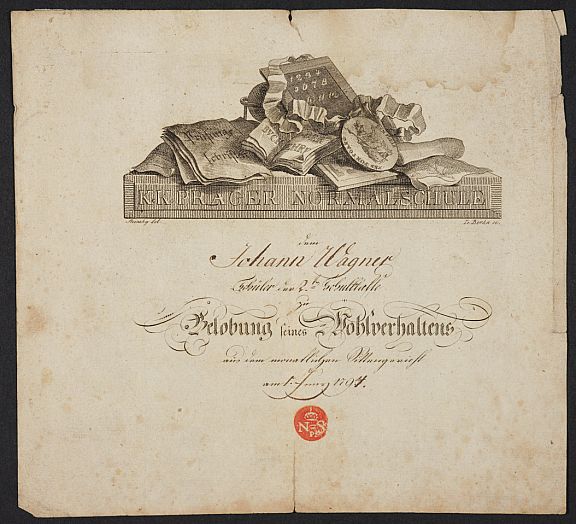 1234
5678
BUCH
K.K. PRAGER NORMALSCHULE
del.
Jo. Berka sc.
dem
Johann Wagner
Schüler der 2ten Schulklasse
zu
Belobung seines Wohlverhaltens
aus dem monatlichen Sittengericht
am 1. 1794.
N S
P